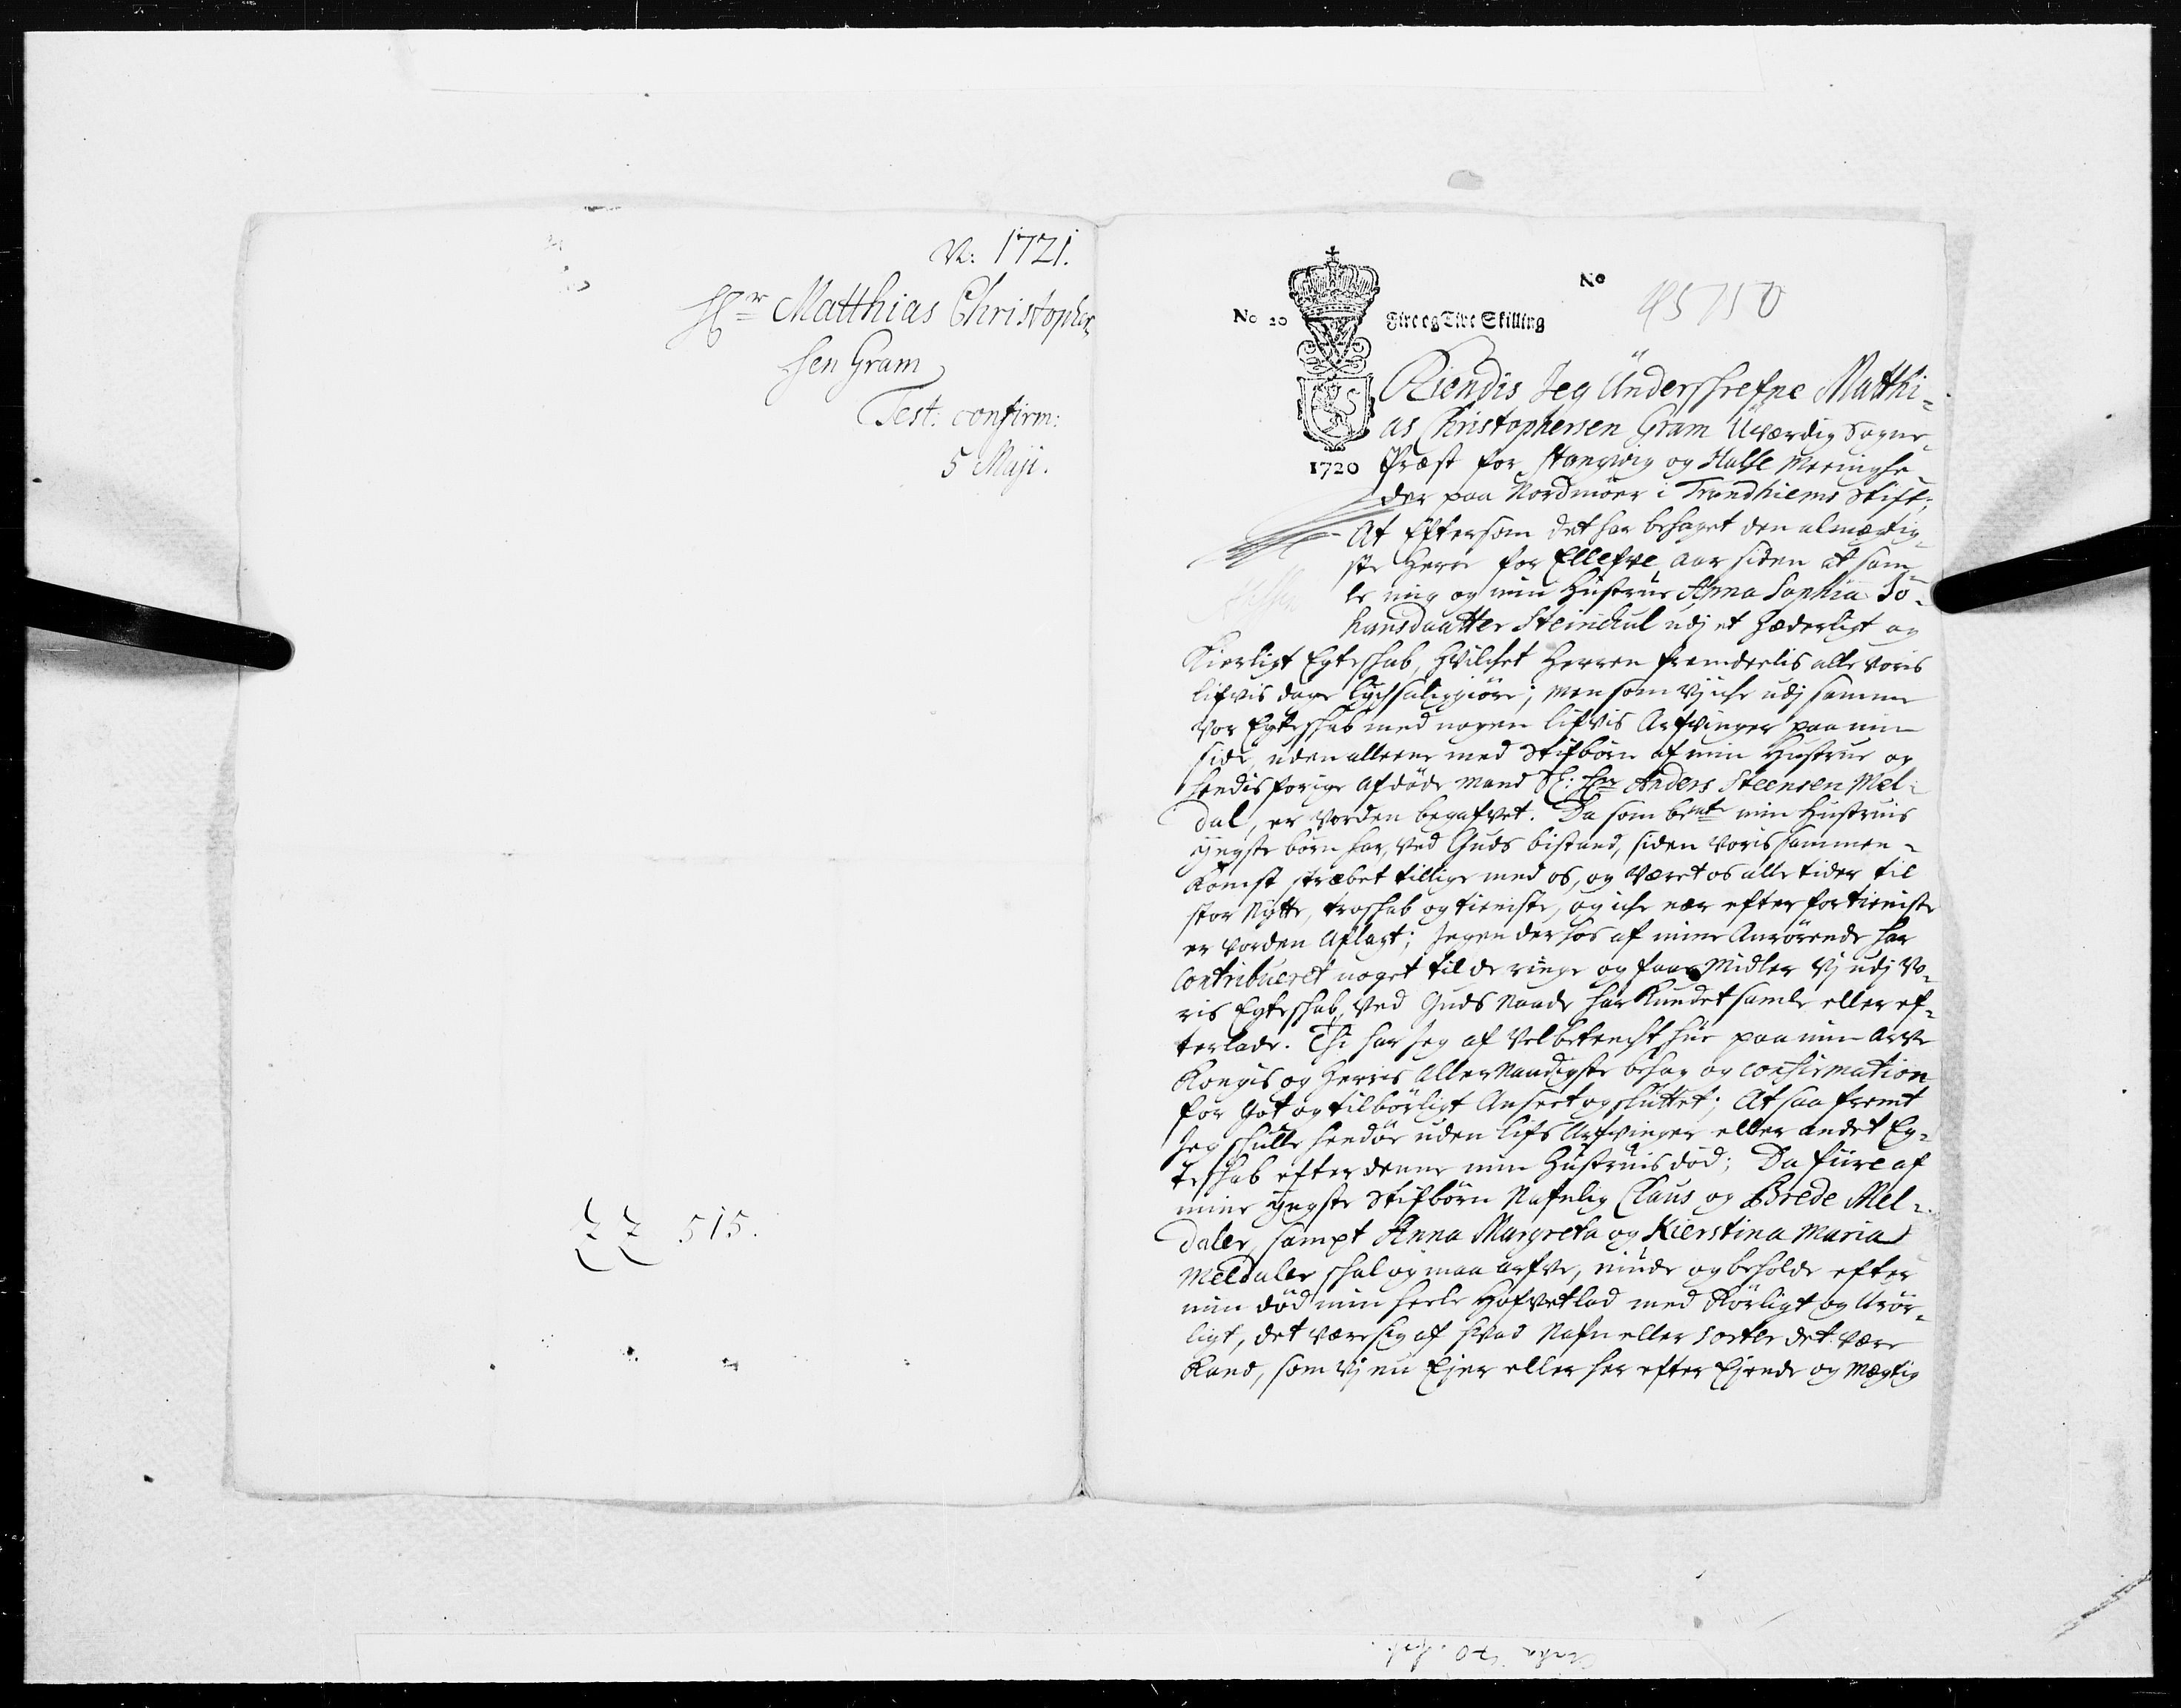 N: 1721.
Hr Matthias Christopher
sen Gram
Test. confirm:
5 Maji.
515.
No 20
Fire og Tive Skilling
No
45750
1720
Kiendis Jeg Underskrefne Matthi-
as Christophersen Gram Uværdig Sogne-
Præst for Stangvig og Halse Meenighe-
der paa Nordmöer i Trondhiems Stift;
At Eftersom det har behaget den almægtig-
ste Herre for Ellefve aar siden at sam-
le mig og min Hustrue Anna Sophia Jo-
hansdaatter Steinckul udj et hæderligt og
Kierligt Egteskab, hvilchet Herren fremdeelis alle voris
lifvis dage lychsaliggiöre; men som vj iche udj samme
vor Egteskab med nogen lifvis Arfvinger paa min
side, uden alleene med Stifbörn af min Hustrue og
hendis forige afdöde mand Sl. Hr Anders Steensen Mel-
dal, er vorden begafvet. Da som bemte min Hustruis
yngste börn har, ved Guds bistand, siden voris sammen-
komst stræbet tillige med os, og været os alle tider til
stor Nytte, troskab og tieniste, og iche nær efter fortieniste
er vorden Aflagt; Ingen derhos af mine Anrörende har
contribueret noget til de ringe og faae Midler vj udj vo-
ris Egteskab, ved Guds Naade har kundet samle eller ef-
terlade. Thi har Jeg af velbetencht hue paa min Arve
Kongis og Herris Allernaadigste behag og confirmation
for got og tilbörligt Anseet og sluttet; At saa fremt
Jeg skulle hendöe uden lifs Arfvinger eller andet Eg-
teskab efter denne min Hustruis död; Da fiire af
mine yngste Stifbörn Nafnlig Claus og Brede Mel-
daler, sampt Anna Margreta og Kierstina Maria
Meldaler skal og maa arfve, niude og beholde efter
min död min heele Hofvetlod med Rörligt og Urör-
ligt, det være sig af hvad Nafn eller sorter det være
kand, som vj nu Ejer eller her efter Ejende og Mægtig